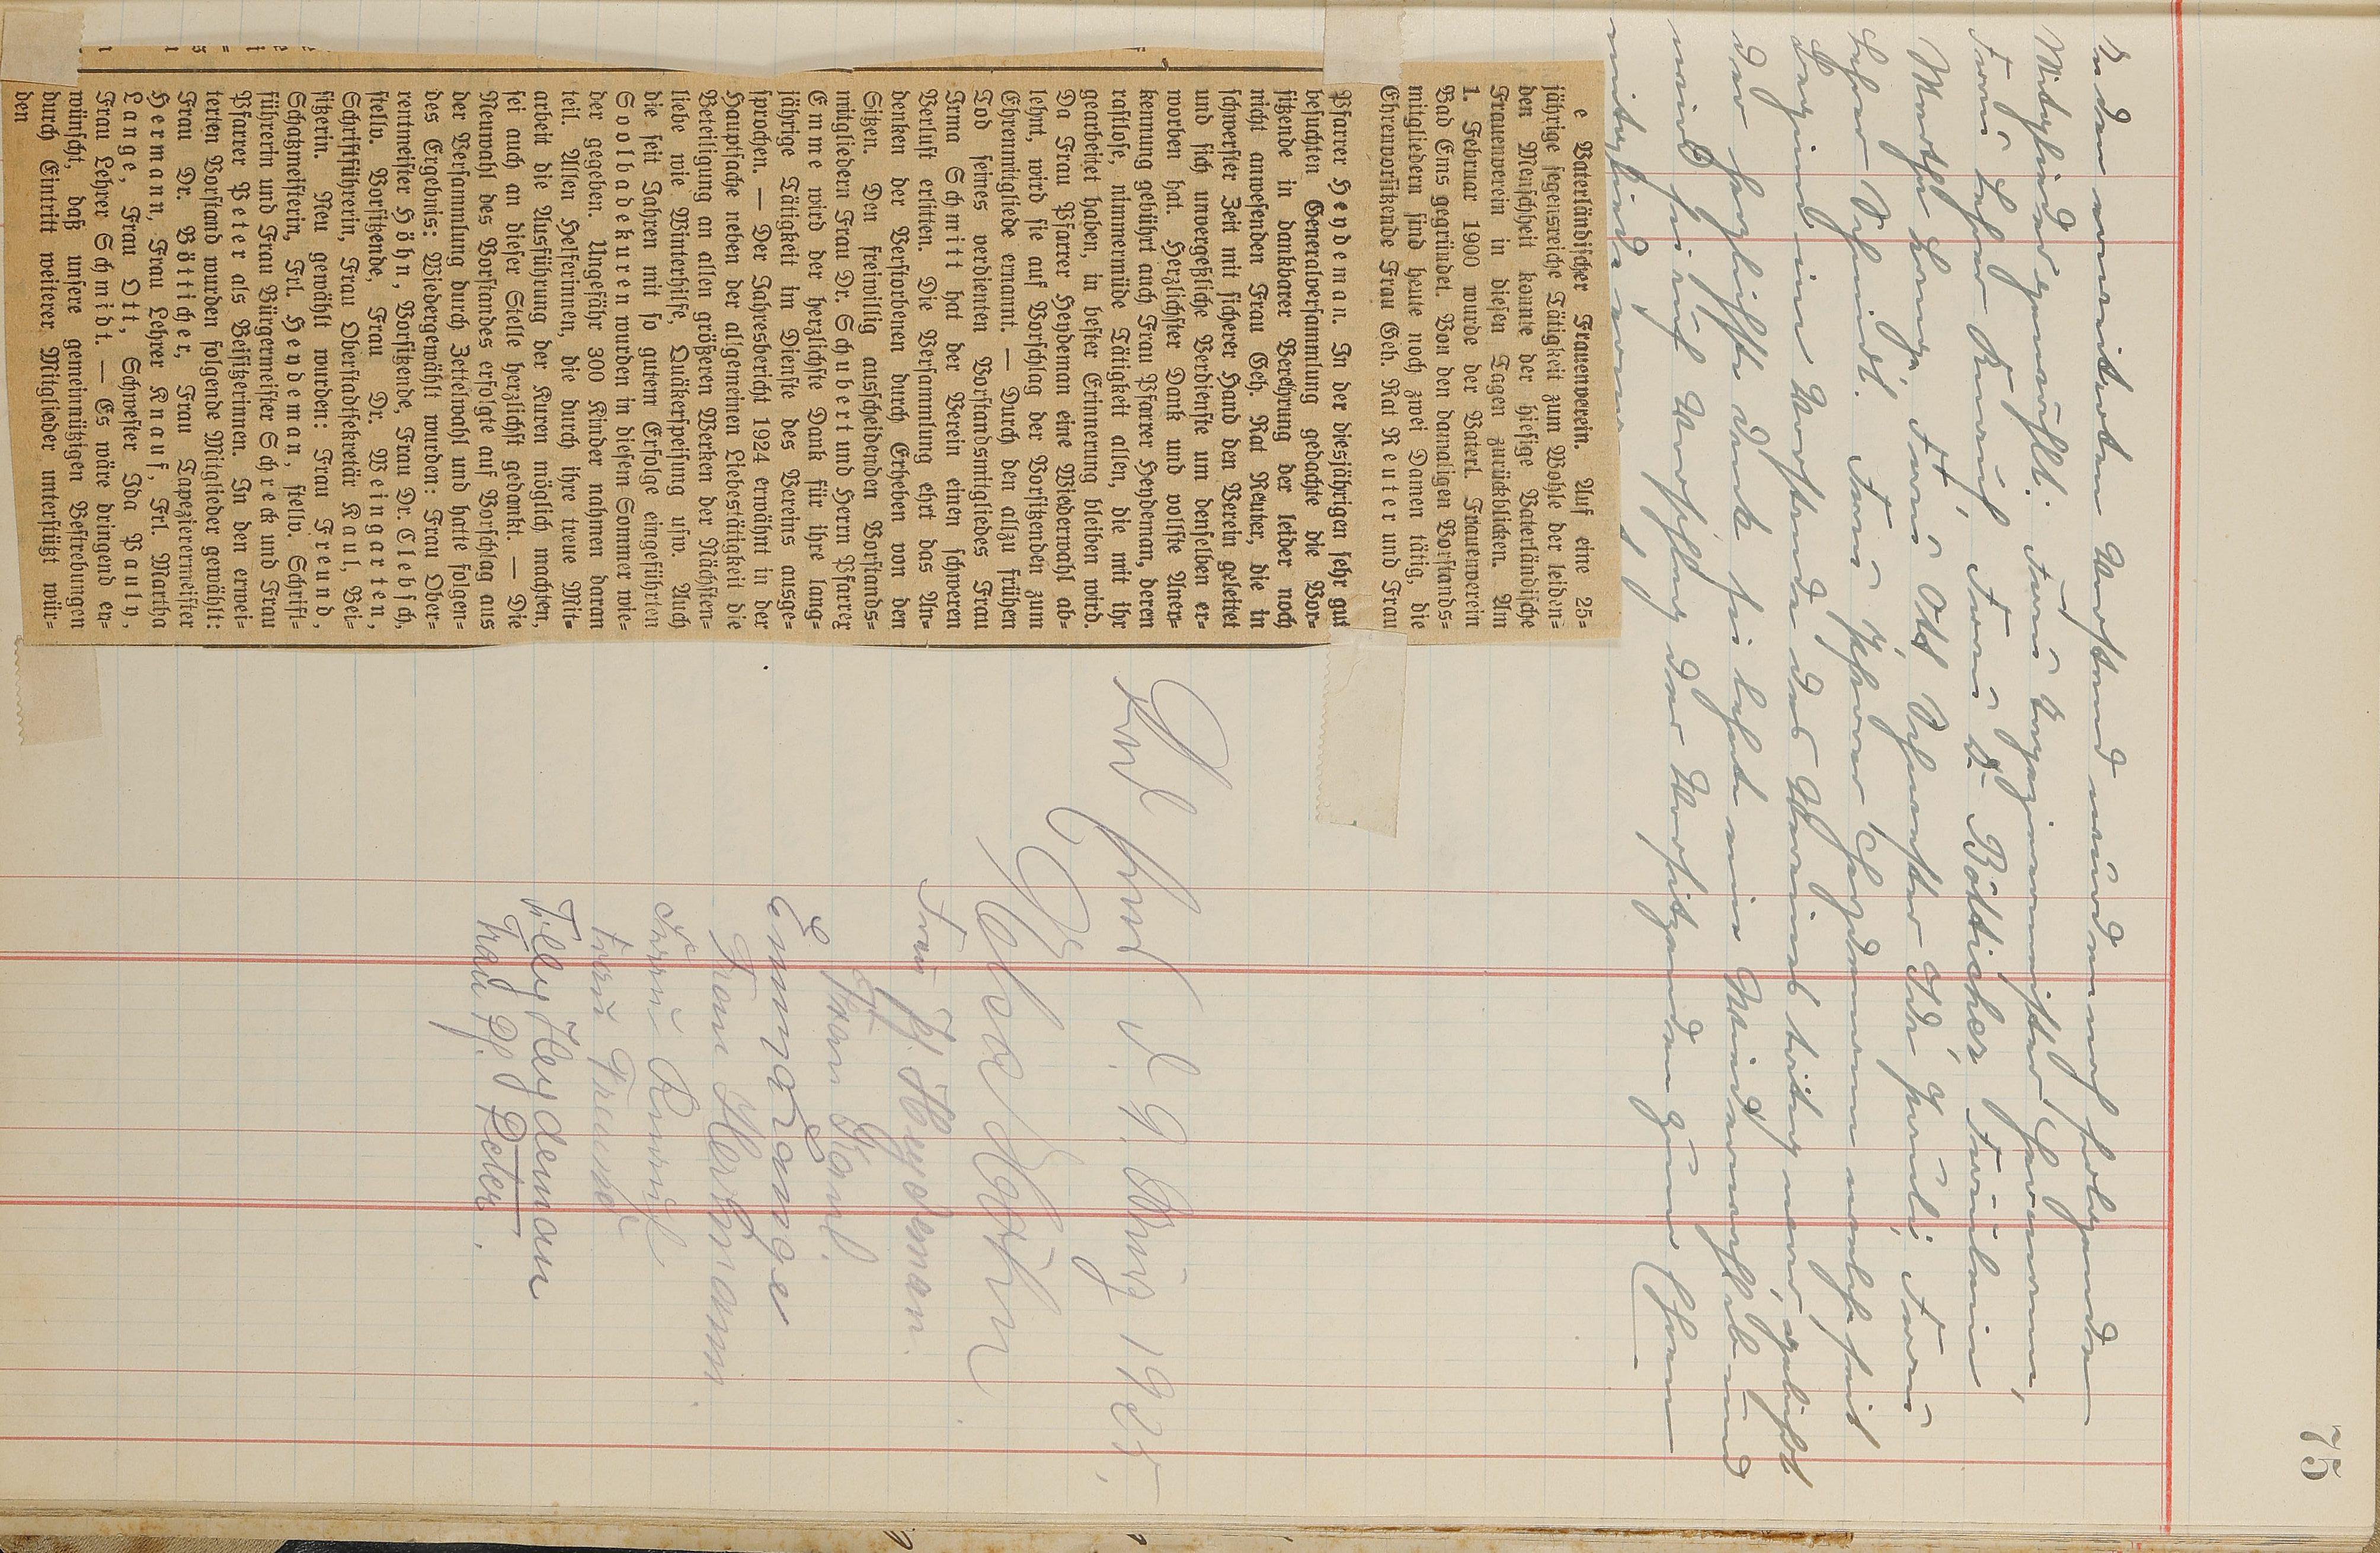 75
In den erweiterten Vorstand wurden noch folgende
Mitglieder gewählt: Frau Tapezierermeister Hermann,
Frau Lehrer Knauf, Frau Dr. Bötticher Fräulein
Martha Lange, Frau Ott Schwester Ida Pauli, Frau
Lehrer Schmidt. Frau Pfarrer Heydemann welche seit
Beginn im Vorstande des Vereins tätig war, gebührt
der herzlichste Dank sie lehnte eine Wiederwahl ab und
wird sie auf Vorschlag der Vorsitzenden zum Ehren
mitgliede ernannt
e Vaterländischer Frauenverein. Auf eine 25-
jährige segensreiche Tätigkeit zum Wohle der leiden-
den Menschheit konnte der hiesige Vaterländische
Frauenverein in diesen Tagen zurückblicken. Am
1. Februar 1900 wurde der Vaterl. Frauenverein
Bad Ems gegründet. Von den damaligen Vorstands-
mitgliedern sind heute noch zwei Damen tätig, die
Ehrenvorsitzende Frau Geh. Rat Reuter und Frau
Pfarrer Heydeman. In der diesjährigen sehr gut
besuchten Generalversammlung gedachte die Vor-
sitzende in dankbarer Verehrung der leider noch
nicht anwesenden Frau Geh. Rat Reuter, die in
schwerster Zeit mit sicherer Hand den Verein geleitet
und sich unvergeßliche Verdienste um denselben er-
worben hat. Herzlichster Dank und vollste Aner-
kennung gebührt auch Frau Pfarrer Heydeman, deren
rastlose, nimmermüde Tätigkeit allen, die mit ihr
gearbeitet haben, in bester Erinnerung bleiben wird.
Da Frau Pfarrer Heydeman eine Wiederwahl ab-
lehnt, wird sie auf Vorschlag der Vorsitzenden zum
Ehrenmitgliede ernannt. — Durch den allzu frühen
Tod seines verdienten Vorstandsmitgliedes Frau
Irma Schmitt hat der Verein einen schweren
Verlust erlitten. Die Versammlung ehrt das An-
denken der Verstorbenen durch Erheben von den
Sitzen. Den freiwillig ausscheidenden Vorstands-
mitgliedern Frau Dr. Schubert und Herrn Pfarrer
Emme wird der herzlichste Dank für ihre lang-
jährige Tätigkeit im Dienste des Vereins ausge-
sprochen. — Der Jahresbericht 1924 erwähnt in der
Hauptsache neben der allgemeinen Liebestätigkeit die
Beteiligung an allen größeren Werken der Nächsten-
liebe wie Winterhilfe, Quäkerspeisung usw. Auch
die seit Jahren mit so gutem Erfolge eingeführten
Soolbadekuren wurden in diesem Sommer wie-
der gegeben. Ungefähr 300 Kinder nahmen daran
teil. Allen Helferinnen, die durch ihre treue Mit-
arbeit die Ausführung der Kuren möglich machten,
sei auch an dieser Stelle herzlichst gedankt. — Die
Neuwahl des Vorstandes erfolgte auf Vorschlag aus
der Versammlung durch Zettelwahl und hatte folgen-
des Ergebnis: Wiedergewählt wurden: Frau Ober-
rentmeister Höhn, Vorsitzende, Frau Dr. Clebsch,
stellv. Vorsitzende, Frau Dr. Weingarten,
Schriftführerin, Frau Oberstadtsekretär Kaul, Bei-
sitzerin. Neu gewählt wurden: Frau Freund,
Schatzmeisterin, Frl. Heydeman, stellv. Schrift-
führerin und Frau Bürgermeister Schreck und Frau
Pfarrer Peter als Beisitzerinnen. In den erwei-
terten Vorstand wurden folgende Mitglieder gewählt:
Frau Dr. Bötticher, Frau Tapezierermeister
Hermann, Frau Lehrer Knauf, Frl. Martha
Lange, Frau Ott, Schwester Ida Pauly,
Frau Lehrer Schmidt. — Es wäre dringend er-
wünscht, daß unsere gemeinnützigen Bestrebungen
durch Eintritt weiterer Mitglieder unterstützt wür-
den
1925
Höhn
Frau Pf. Heydeman.
Frau Kaul.
Emma Lange
Frau Hermann.
Frau Knauf
Frau Freund
Tilly Heydeman
Frau Pf. Peter.